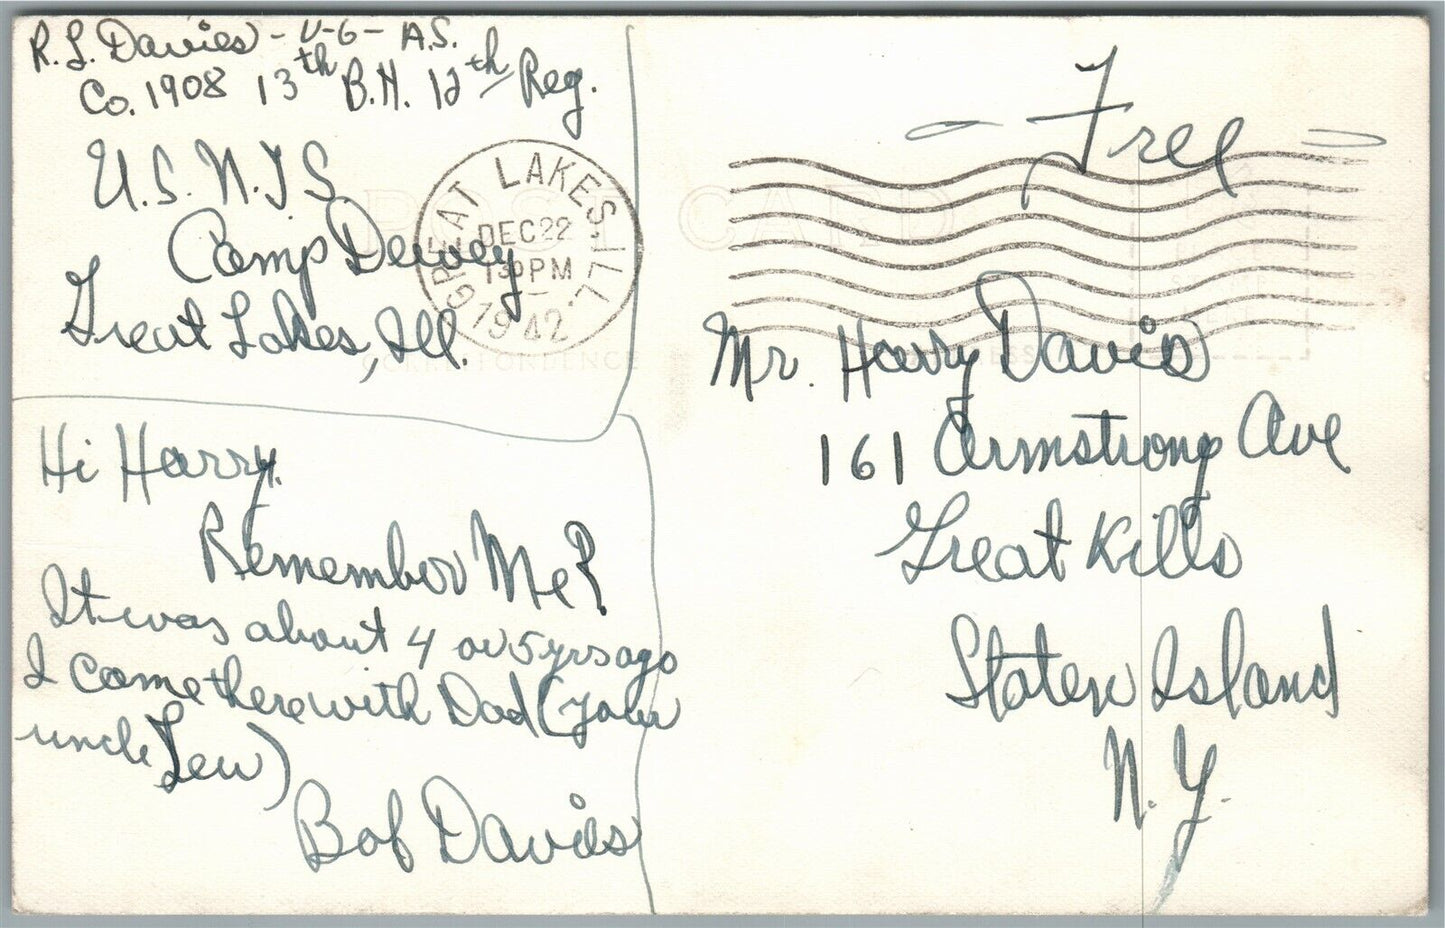 R. L. Davies - V-6 - A.S.
Co. 1908 13th B.N. 12th Reg.
U.S.N.T.S.
Camp Dewey
Great Lakes, Ill.
GREAT LAKES, ILL.
DEC 22
1 30 PM
1942
POST CARD
CORRESPONDENCE
Hi Harry.
Remember Me?
It was about 4 or 5 yrs ago
I came there with Dad (your
uncle Lew)
Bob Davies
- Free -
Mr. Harry Davis
161 Armstrong Ave
Great Kills
Staten Island
N.Y.